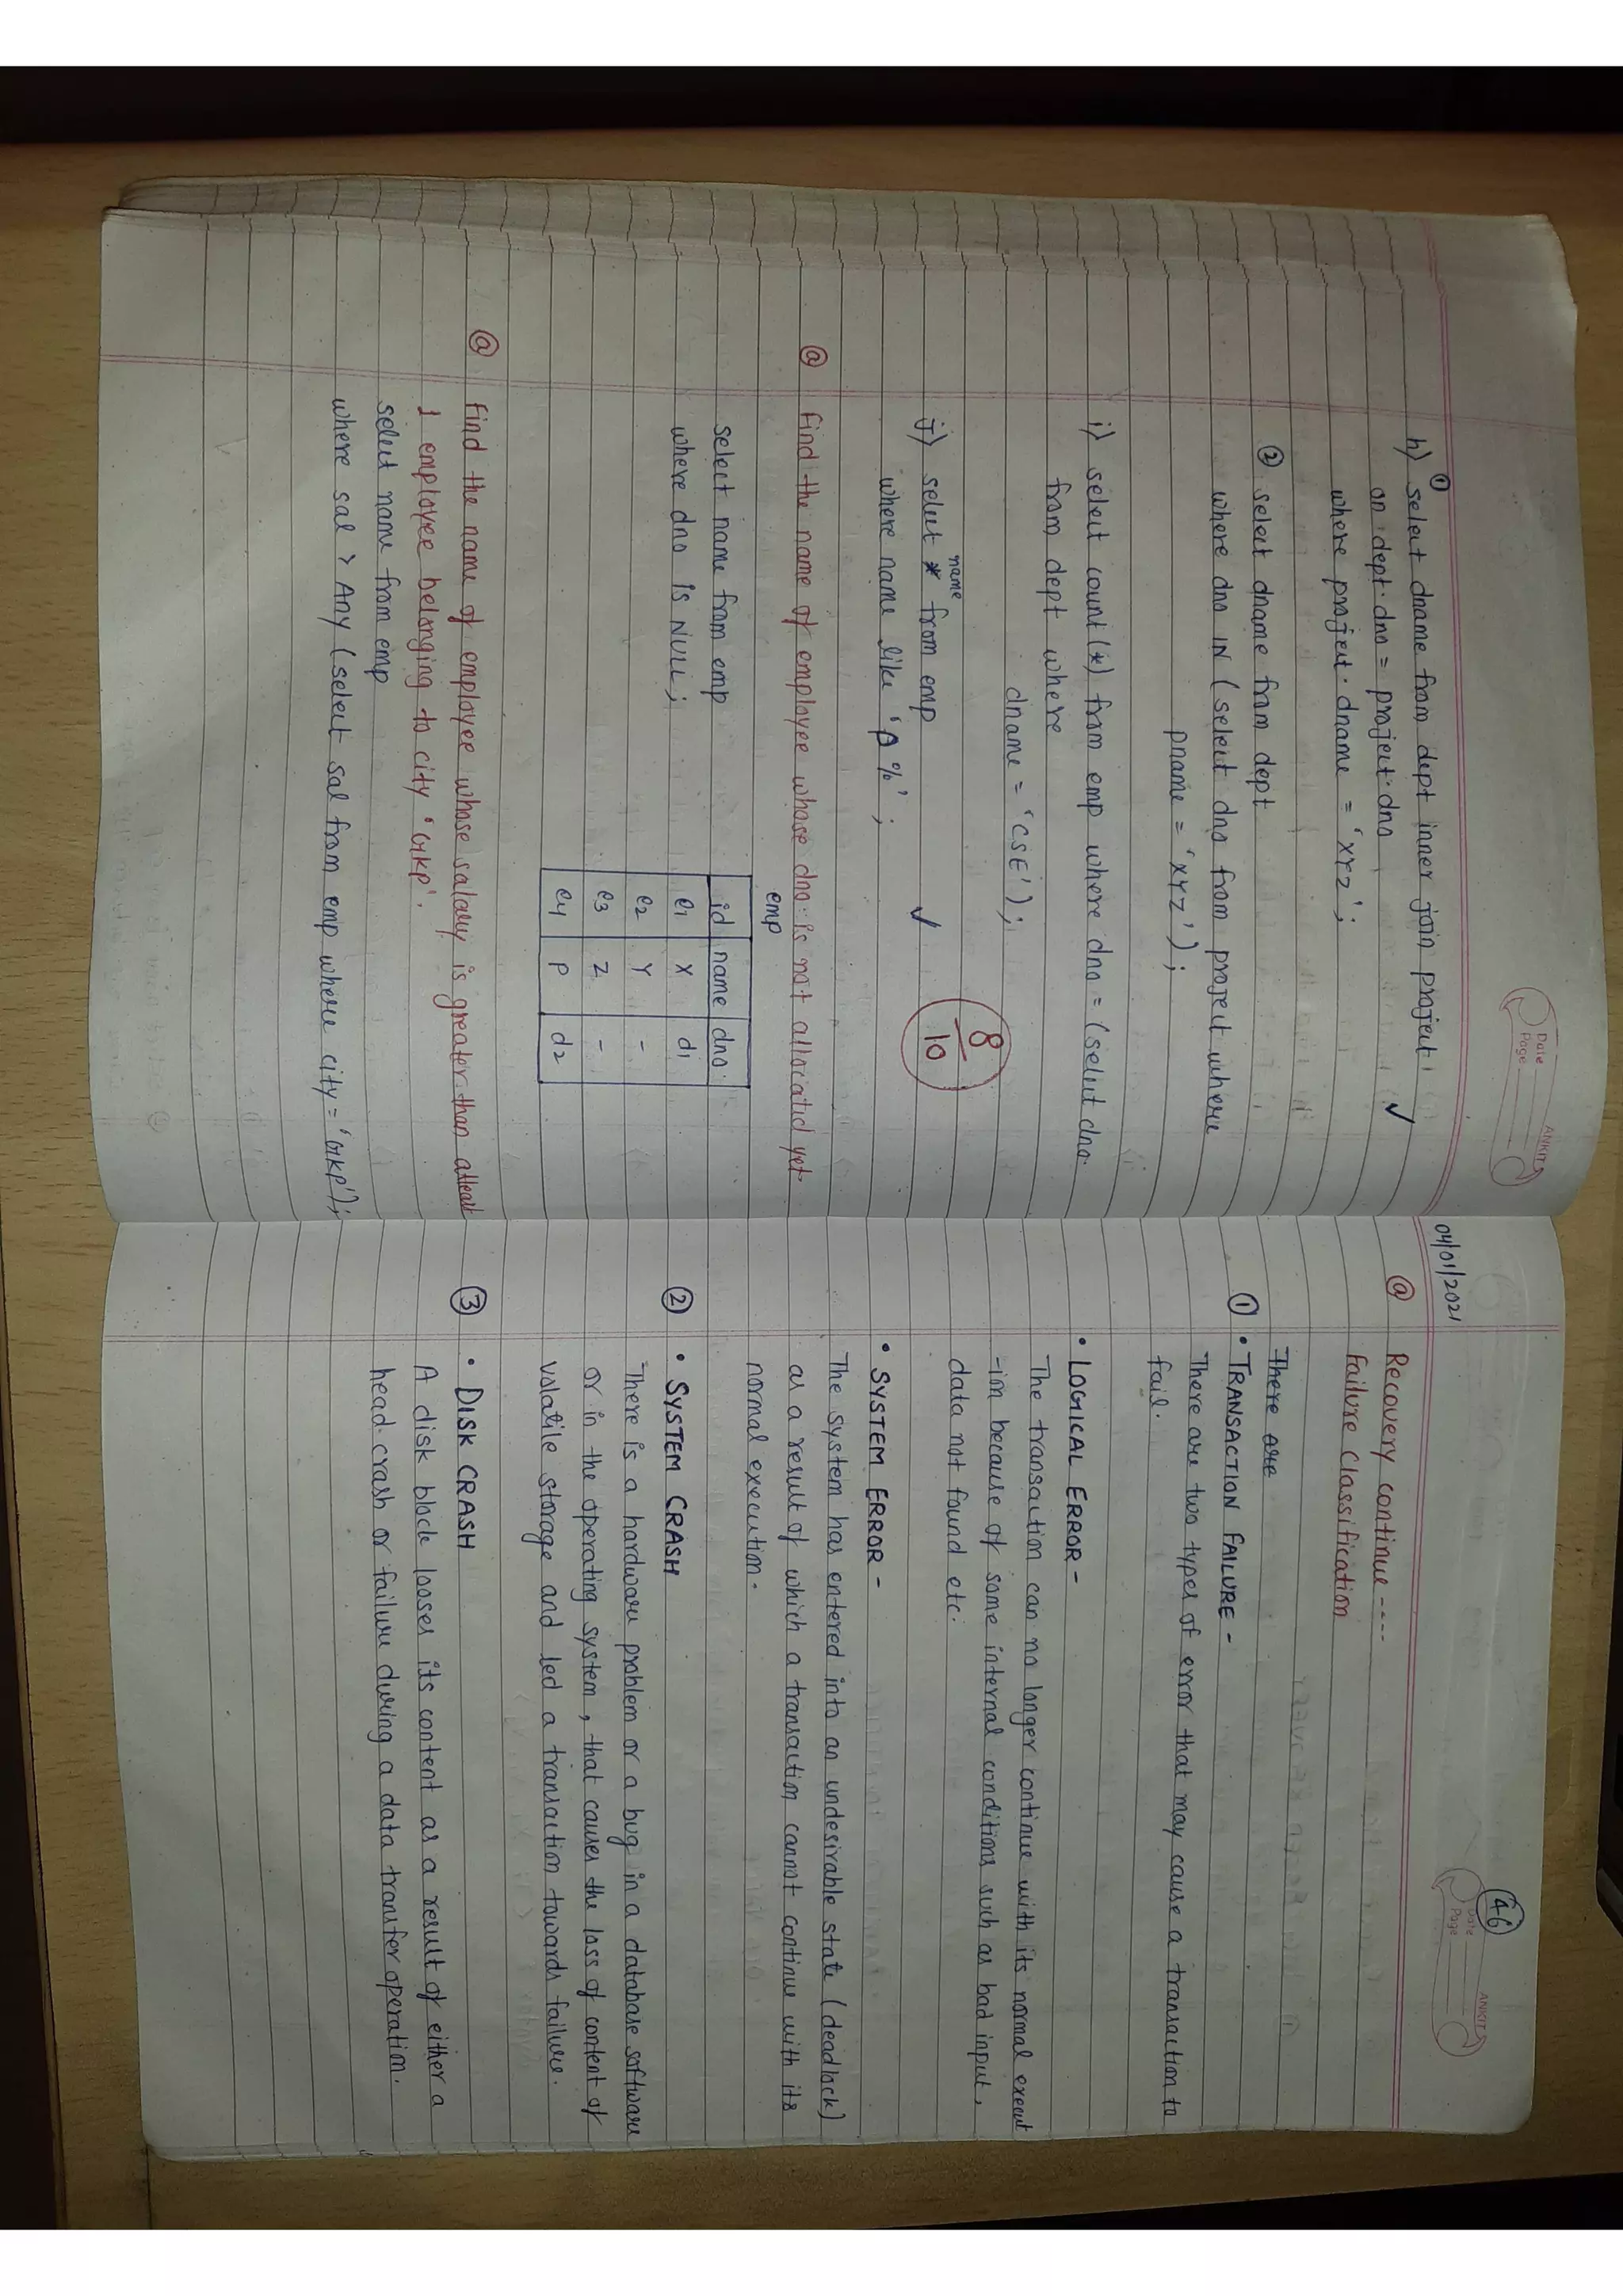 Date
Page
ANKIT
h) ① select dname from dept inner join project
on dept.dno = project.dno ✓
where project.dname = 'XYZ';
② select dname from dept
where dno IN (select dno from project where
pname = 'XYZ');
i) select count(*) from emp where dno = (select dno.
from dept where
dname = 'CSE');
j) select * name from emp ✓
where name like 'A%';
8/10
@ Find the name of employee whose dno. is not allocated yet.
select name from emp
where dno is NULL;
emp
id name dno.
e1 X d1
e2 Y -
e3 Z -
e4 P d2
@ Find the name of employee whose salary is greater than atleast
1 employee belonging to city 'GKP'.
select name from emp
where sal > Any (select sal from emp where city = 'GKP');
04/01/2021
46
Date
Page
ANKIT
@ Recovery continue ----
Failure Classification
There are
① • TRANSACTION FAILURE -
There are two types of error that may cause a transaction to
fail.
• LOGICAL ERROR -
The transaction can no longer continue with its normal execut
-ion because of some internal conditions such as bad input,
data not found etc.
• SYSTEM ERROR -
The system has entered into an undesirable state (deadlock)
as a result of which a transaction cannot continue with its
normal execution.
② • SYSTEM CRASH
There is a hardware problem or a bug in a database software
or in the operating system, that causes the loss of content of
volatile storage and led a transaction towards failure.
③ • DISK CRASH
A disk block looses its content as a result of either a
head crash or failure during a data transfer operation.